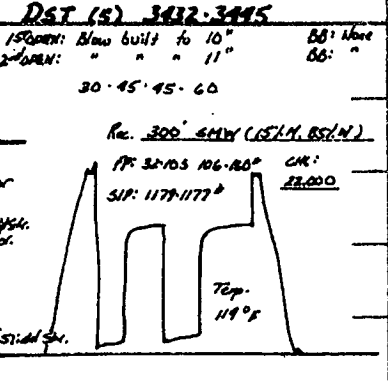 DST (5) 3432-3445
1st OPEN: Blow built to 10" BB: None
2nd OPEN: " " " 11" BB: "
30-45-45-60
Rec. 300' GMW (15% M, 85% W)
FP: 32-103 106-160# CHL:
SIP: 1179-1177# 22,000
Temp.
119°F